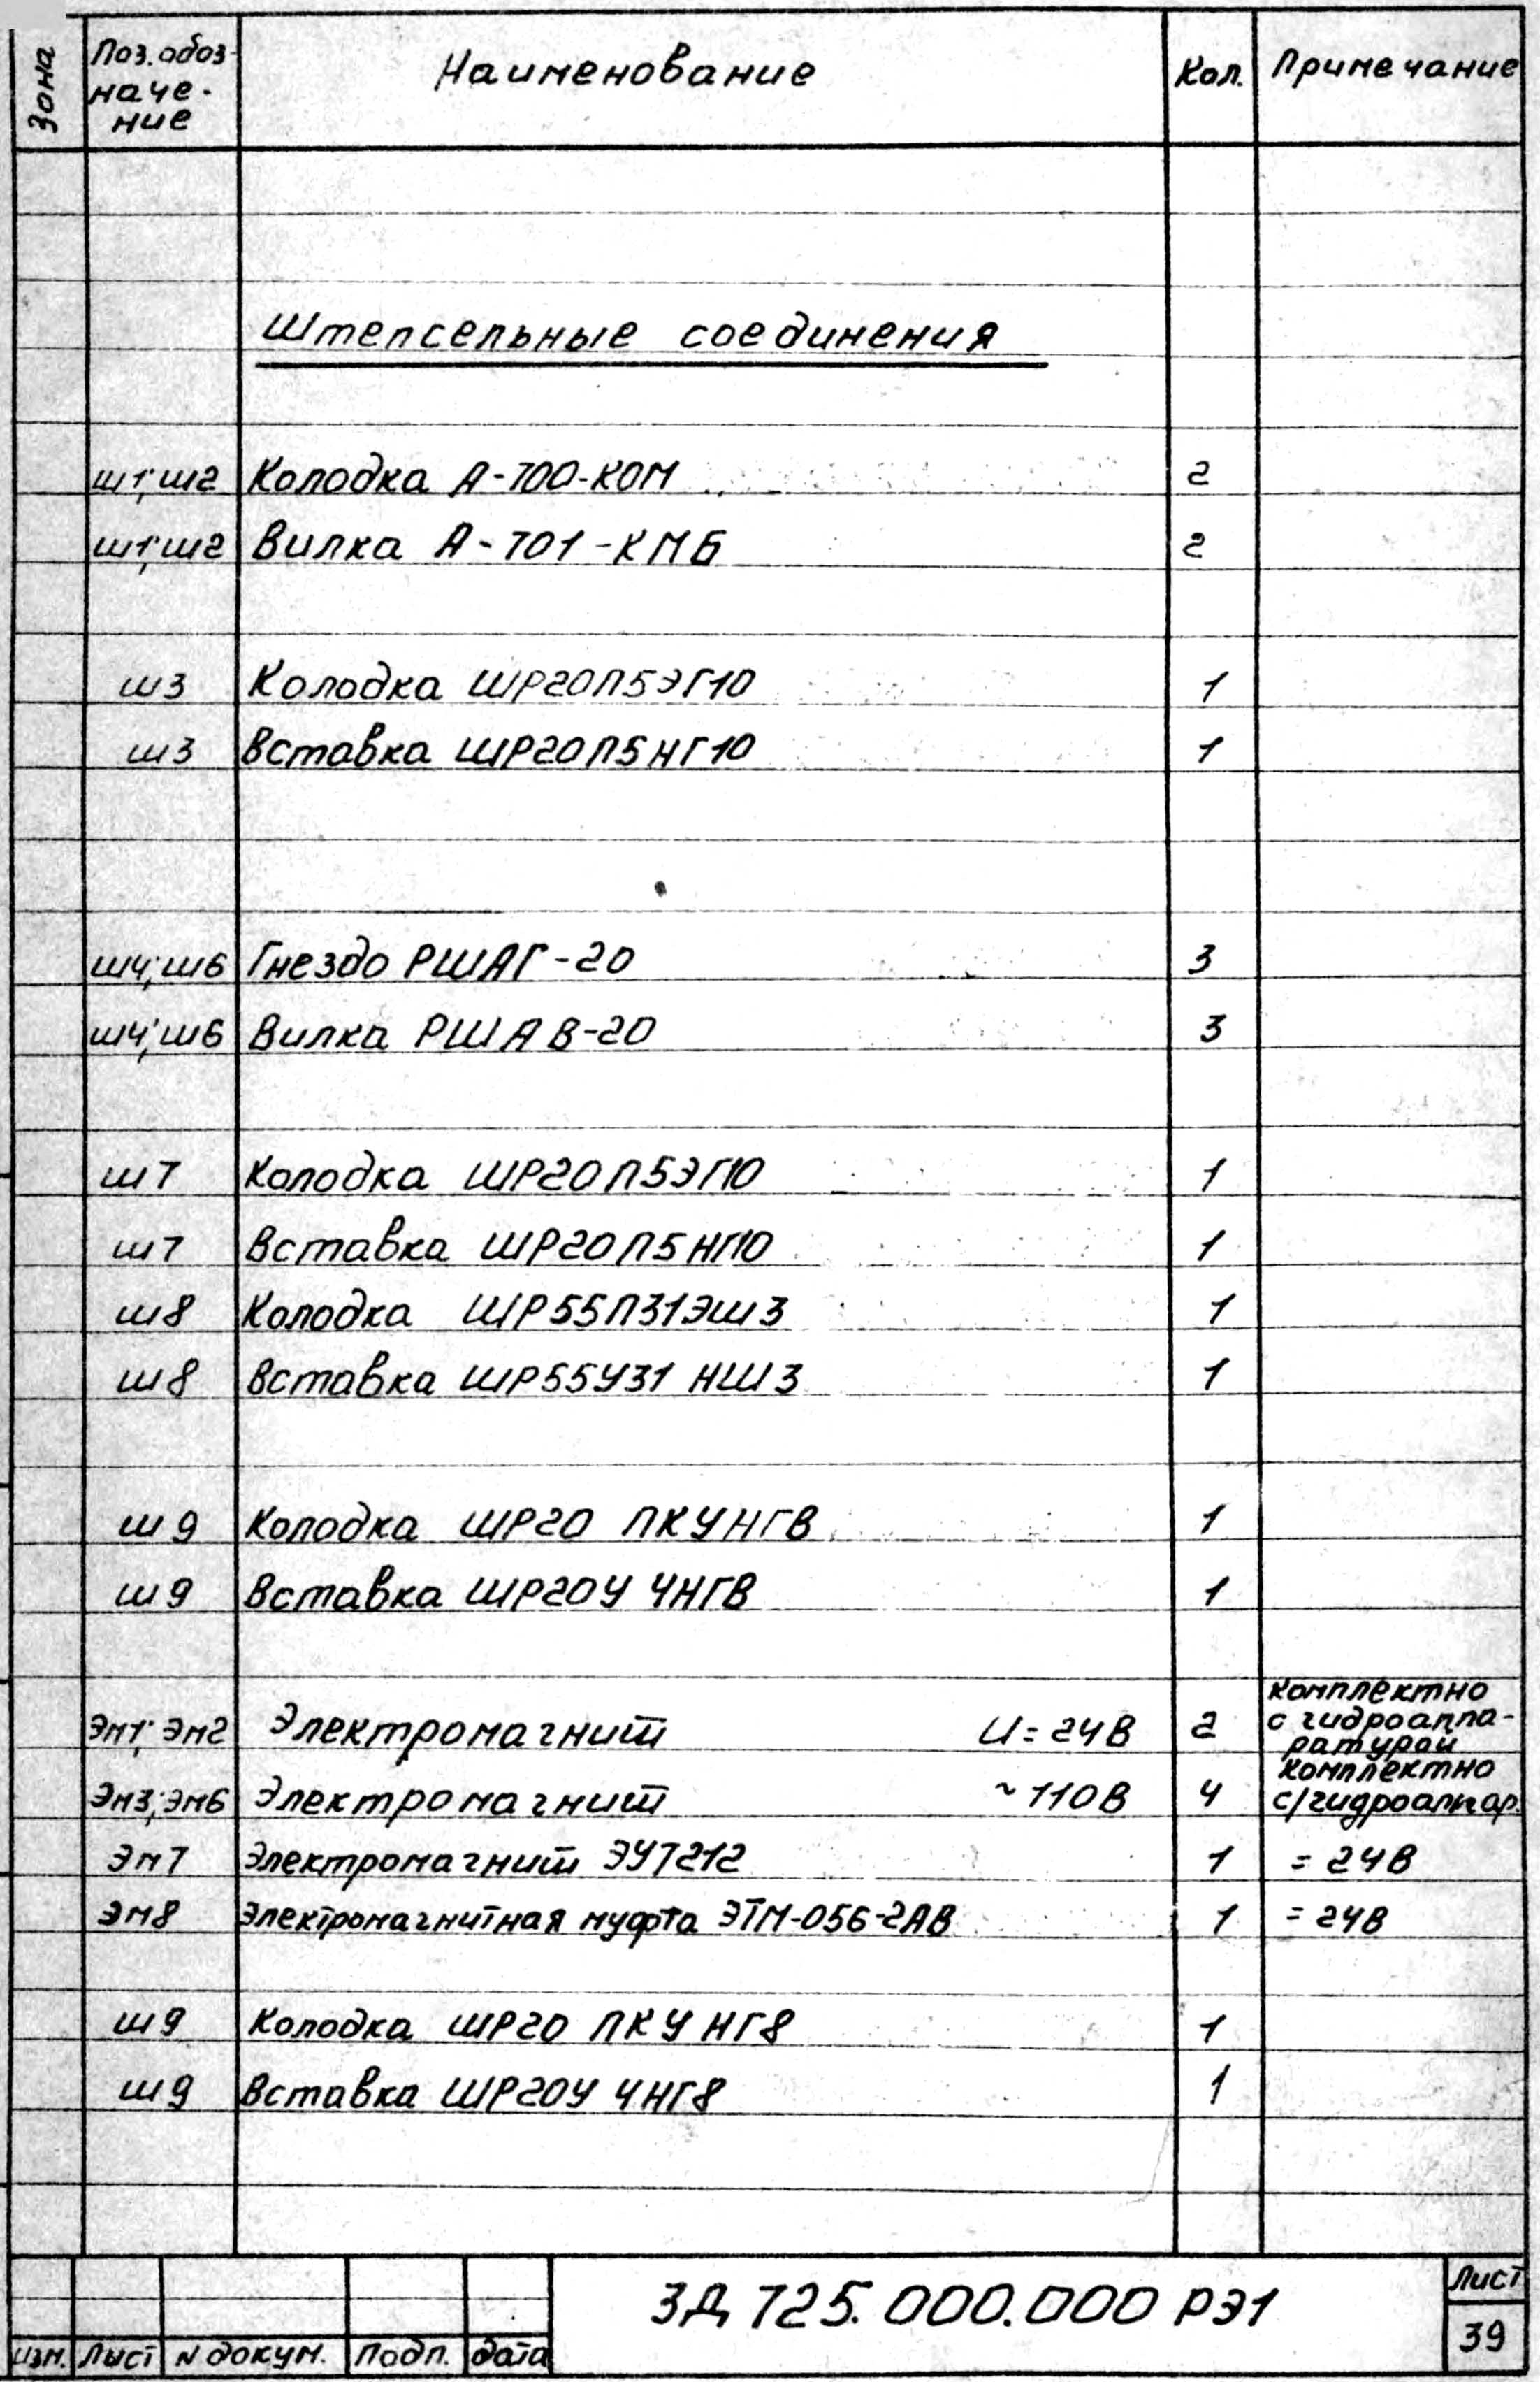 Зона Поз. обоз- Наименование Кол. Примечание
наче-
ние
Штепсельные соединения
Ш1; Ш2 Колодка А-700-КОМ 2
Ш1; Ш2 Вилка А-701-КМБ 2
Ш3 Колодка ШР20П5ЭГ10 1
Ш3 Вставка ШР20П5НГ10 1
Ш4; Ш6 Гнездо РШАГ-20 3
Ш4; Ш6 Вилка РШАВ-20 3
Ш7 Колодка ШР20П5ЭГ10 1
Ш7 Вставка ШР20П5НГ10 1
Ш8 Колодка ШР55П31ЭШ3 1
Ш8 Вставка ШР55У31 НШ3 1
Ш9 Колодка ШР20 ПКУНГВ 1
Ш9 Вставка ШР20У ЧНГВ 1
Комплектно
Эм1; Эм2 Электромагнит U=24В 2 с гидроаппа-
ратурой
Комплектно
Эм3; Эм6 Электромагнит ~110В 4 с/гидроаппар.
Эм7 Электромагнит ЭУ7212 1 =24В
Эм8 Электромагнитная муфта ЭТМ-056-2АВ 1 =24В
Ш9 Колодка ШР20 ПКУ НГ8 1
Ш9 Вставка ШР20У ЧНГ8 1
3Д 725.000.000 РЭ1 Лист
39
Изм. Лист N докум. Подп. Дата